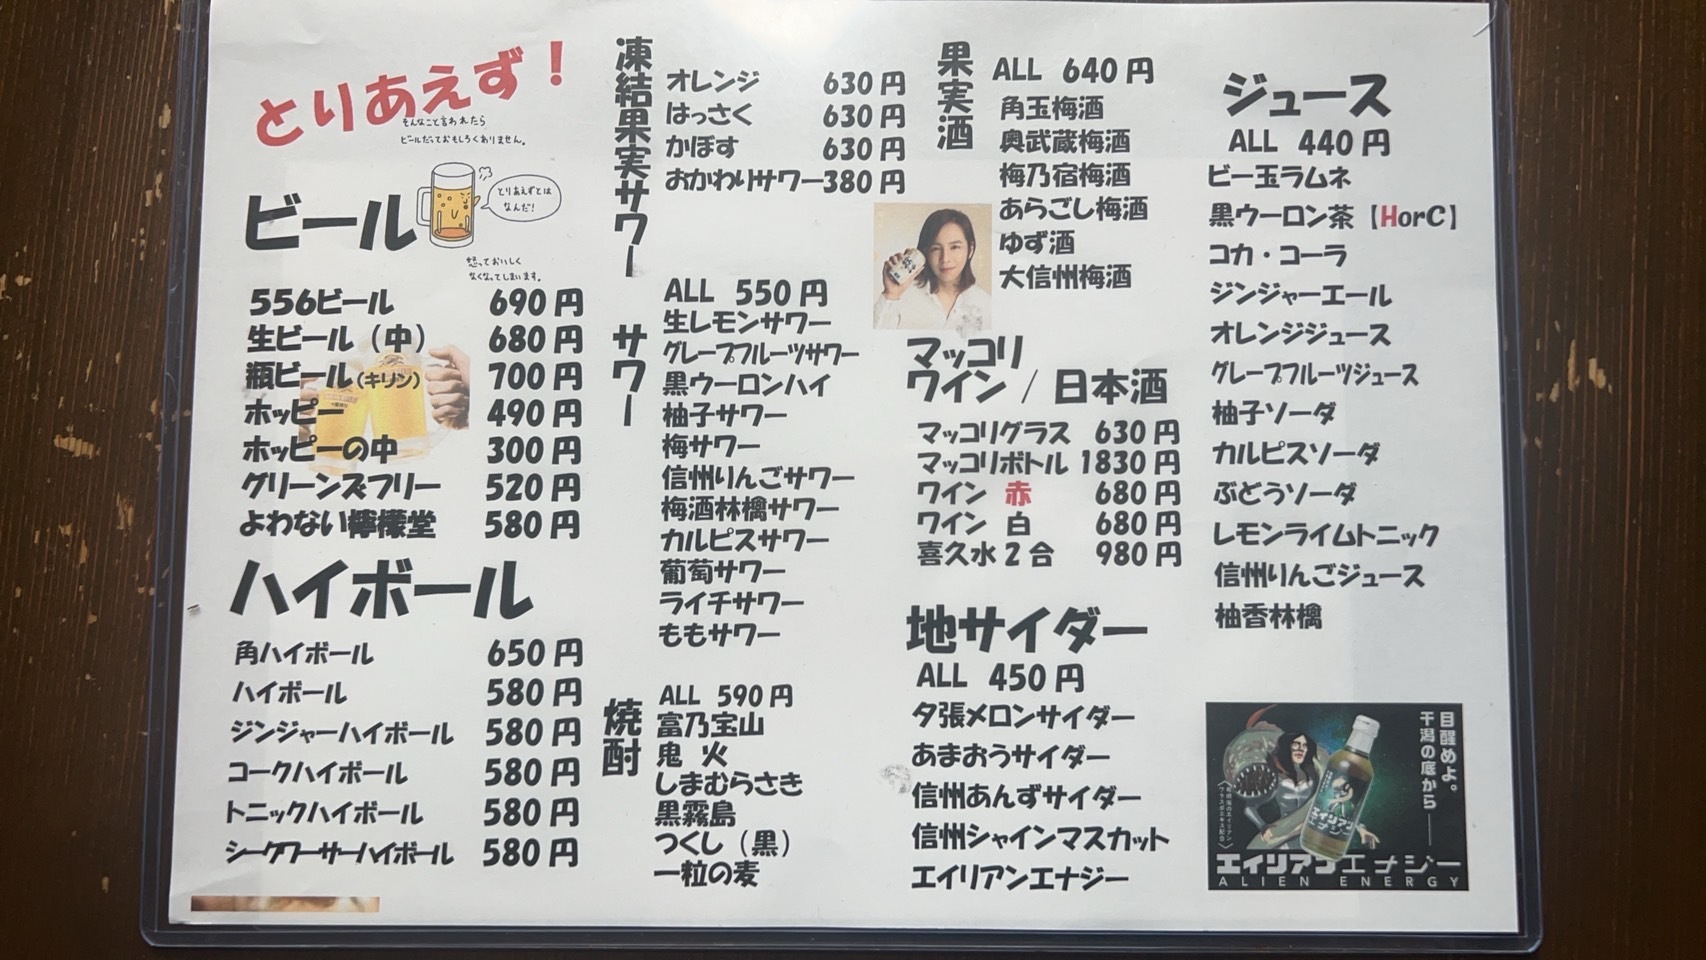 とりあえず！
そんなこと言われたら
ビールだっておもしろくありません。
ビール
とりあえずとは
なんだ！
怒っておいしく
なくなってしまいます。
556ビール 690円
生ビール（中） 680円
瓶ビール（キリン） 700円
ホッピー 490円
ホッピーの中 300円
グリーンズフリー 520円
よわない檸檬堂 580円
ハイボール
角ハイボール 650円
ハイボール 580円
ジンジャーハイボール 580円
コークハイボール 580円
トニックハイボール 580円
シークワーサーハイボール 580円
凍結果実サワー
オレンジ 630円
はっさく 630円
かぼす 630円
おかわりサワー380円
サワー
ALL 550円
生レモンサワー
グレープフルーツサワー
黒ウーロンハイ
柚子サワー
梅サワー
信州りんごサワー
梅酒林檎サワー
カルピスサワー
葡萄サワー
ライチサワー
ももサワー
焼酎
ALL 590円
富乃宝山
鬼 火
しまむらさき
黒霧島
つくし（黒）
一粒の麦
果実酒
ALL 640円
角玉梅酒
奥武蔵梅酒
梅乃宿梅酒
あらごし梅酒
ゆず酒
大信州梅酒
マッコリ
ワイン / 日本酒
マッコリグラス 630円
マッコリボトル 1830円
ワイン 赤 680円
ワイン 白 680円
喜久水2合 980円
地サイダー
ALL 450円
夕張メロンサイダー
あまおうサイダー
信州あんずサイダー
信州シャインマスカット
エイリアンエナジー
ジュース
ALL 440円
ビー玉ラムネ
黒ウーロン茶【HorC】
コカ・コーラ
ジンジャーエール
オレンジジュース
グレープフルーツジュース
柚子ソーダ
カルピスソーダ
ぶどうソーダ
レモンライムトニック
信州りんごジュース
柚香林檎
目醒めよ。
干潟の底から――
エイリアンエナジー
ALIEN ENERGY